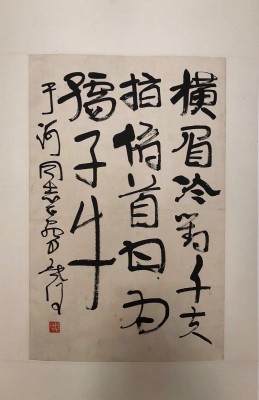 橫眉冷對千夫
指俯首甘為
孺子牛
于河同志